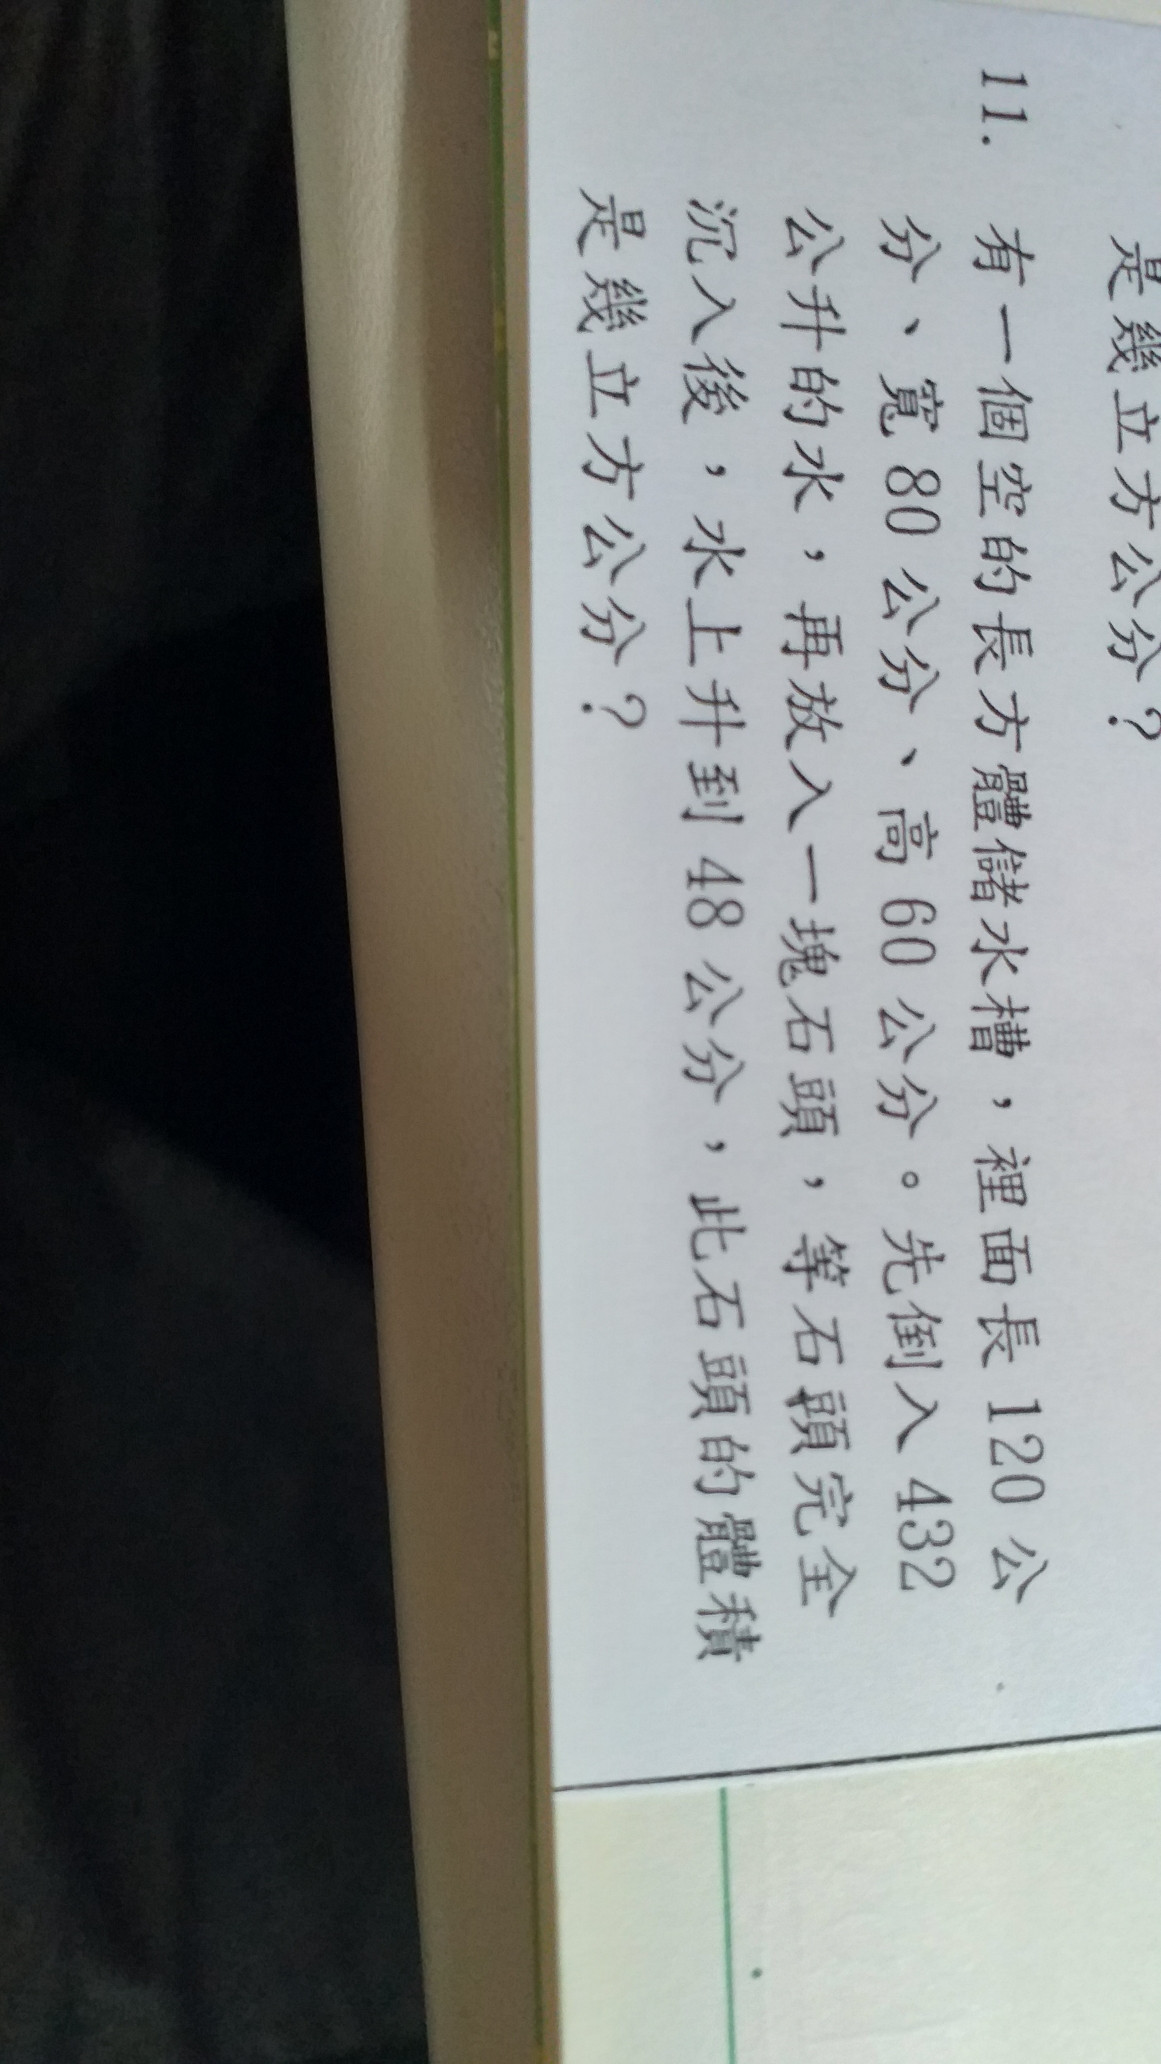 是幾立方公分？
11. 有一個空的長方體儲水槽，裡面長120公
分、寬80公分、高60公分。先倒入432
公升的水，再放入一塊石頭，等石頭完全
沉入後，水上升到48公分，此石頭的體積
是幾立方公分？